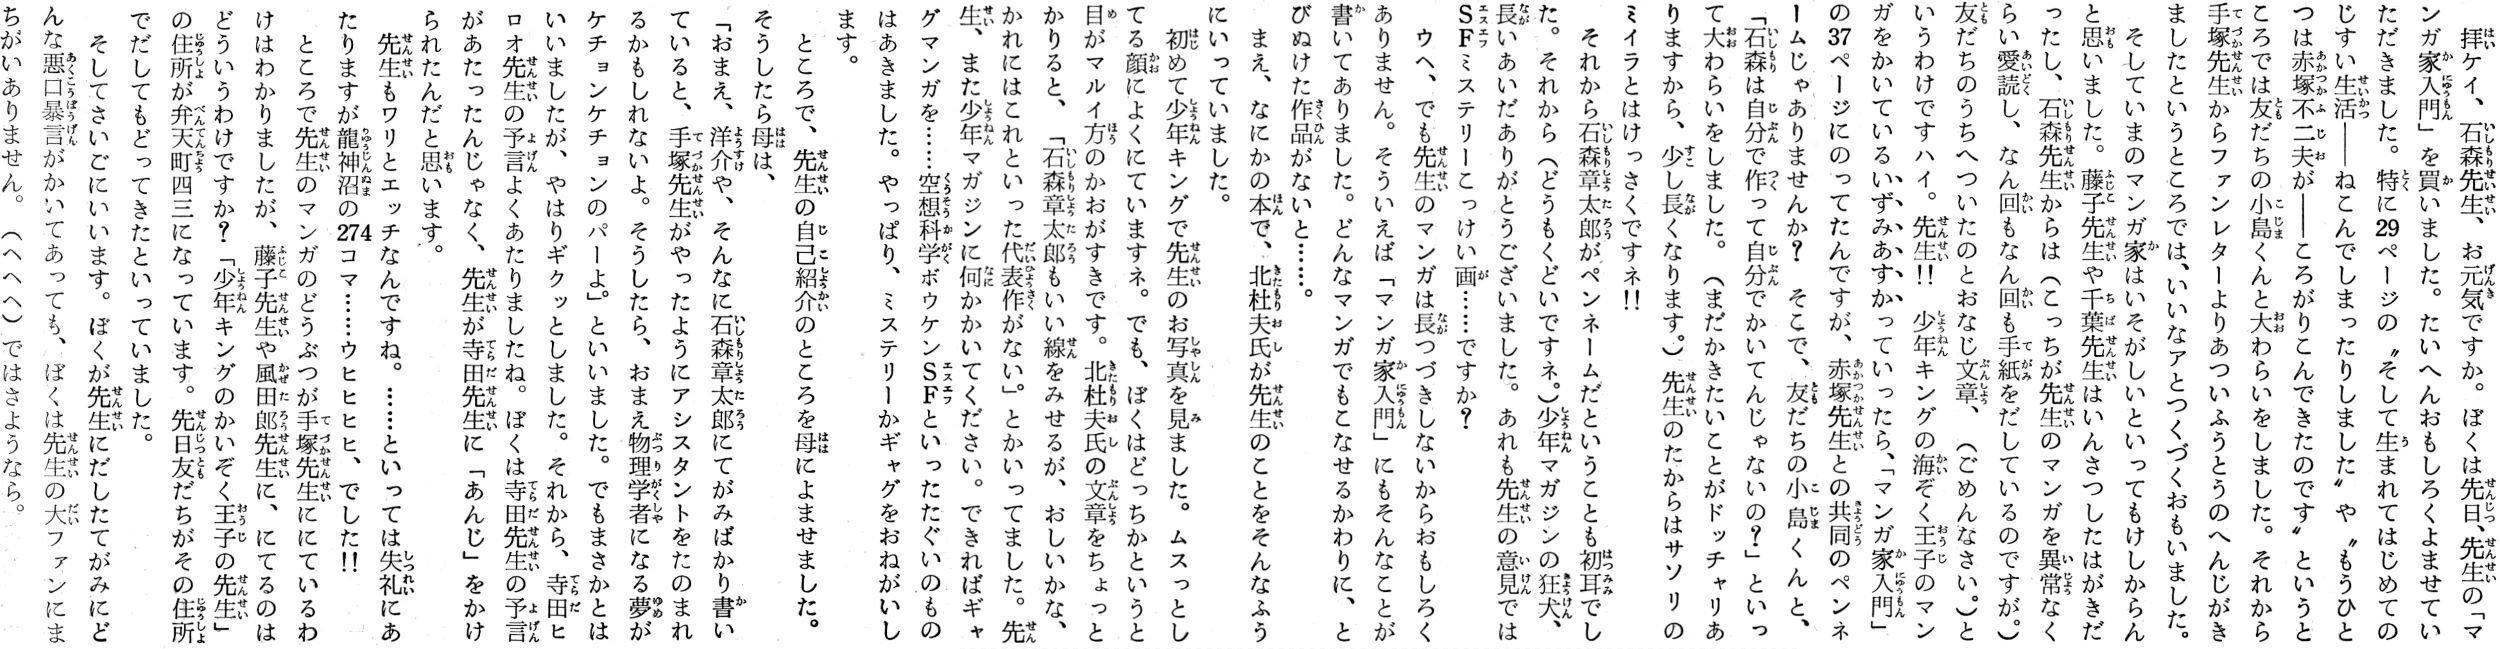 拝ケイ、石森先生、お元気ですか。ぼくは先日、先生の「マ
ンガ家入門」を買いました。たいへんおもしろくよませてい
ただきました。特に29ページの〝そして生まれてはじめての
じすい生活――ねこんでしまったりしました〟や〝もうひと
つは赤塚不二夫が――ころがりこんできたのです〟というと
ころでは友だちの小島くんと大わらいをしました。それから
手塚先生からファンレターよりあついふうとうのへんじがき
ましたというところでは、いいなアとつくづくおもいました。
そしていまのマンガ家はいそがしいといってもけしからん
と思いました。藤子先生や千葉先生はいんさつしたはがきだ
ったし、石森先生からは（こっちが先生のマンガを異常なく
らい愛読し、なん回もなん回も手紙をだしているのですが。）
友だちのうちへついたのとおなじ文章、（ごめんなさい。）と
いうわけですハイ。先生!! 少年キングの海ぞく王子のマン
ガをかいているいずみあすかっていったら、「マンガ家入門」
の37ページにのってたんですが、赤塚先生との共同のペンネ
ームじゃありませんか？ そこで、友だちの小島くんと、
「石森は自分で作って自分でかいてんじゃないの？」といっ
て大わらいをしました。（まだかきたいことがドッチャリあ
りますから、少し長くなります。）先生のたからはサソリの
ミイラとはけっさくですネ!!
それから石森章太郎がペンネームだということも初耳でし
た。それから（どうもくどいですネ。）少年マガジンの狂犬、
長いあいだありがとうございました。あれも先生の意見では
SFミステリーこっけい画……ですか？
ウヘ、でも先生のマンガは長つづきしないからおもしろく
ありません。そういえば「マンガ家入門」にもそんなことが
書いてありました。どんなマンガでもこなせるかわりに、と
びぬけた作品がないと……。
まえ、なにかの本で、北杜夫氏が先生のことをそんなふう
にいっていました。
初めて少年キングで先生のお写真を見ました。ムスっとし
てる顔によくにていますネ。でも、ぼくはどっちかというと
目がマルイ方のかおがすきです。北杜夫氏の文章をちょっと
かりると、「石森章太郎もいい線をみせるが、おしいかな、
かれにはこれといった代表作がない。」とかいってました。先
生、また少年マガジンに何かかいてください。できればギャ
グマンガを……空想科学ボウケンSFといったたぐいのもの
はあきました。やっぱり、ミステリーかギャグをおねがいし
ます。
ところで、先生の自己紹介のところを母によませました。
そうしたら母は、
「おまえ、洋介や、そんなに石森章太郎にてがみばかり書い
ていると、手塚先生がやったようにアシスタントをたのまれ
るかもしれないよ。そうしたら、おまえ物理学者になる夢が
ケチョンケチョンのパーよ」。といいました。でもまさかとは
いいましたが、やはりギクッとしました。それから、寺田ヒ
ロオ先生の予言よくあたりましたね。ぼくは寺田先生の予言
があたったんじゃなく、先生が寺田先生に「あんじ」をかけ
られたんだと思います。
先生もワリとエッチなんですね。……といっては失礼にあ
たりますが龍神沼の274コマ……ウヒヒヒヒ、でした!!
ところで先生のマンガのどうぶつが手塚先生ににているわ
けはわかりましたが、藤子先生や風田郎先生に、にてるのは
どういうわけですか？「少年キングのかいぞく王子の先生」
の住所が弁天町四三になっています。先日友だちがその住所
でだしてもどってきたといっていました。
そしてさいごにいいます。ぼくが先生にだしたてがみにど
んな悪口暴言がかいてあっても、ぼくは先生の大ファンにま
ちがいありません。（へへへ）ではさようなら。